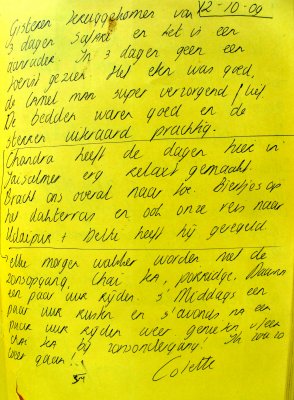 12-10-09
Gisteren teruggekomen van
3 dagen safari en het is een
aanrader. In 3 dagen geen een
toerist gezien. Het eten was goed,
de kamel man super verzorgend / lief
De bedden waren goed en de
sterren uiteraard prachtig.
Chandra heeft de dagen hier in
Jaisalmer erg relaxt gemaakt.
Bracht ons overal naar toe. Biertjes op
het dakterras en ook onze reis naar
Udaipur + Delhi heeft hij geregeld.
elke morgen wakker worden met de
zonsopgang. Chai tea, porridge. Daarna
een paar uur rijden. 's Middags een
paar uur rusten en s'avonds na een
paar uur rijden weer genieten v/een
chai tea bij zonsondergang! Ik zou zo
weer gaan!!
Colette